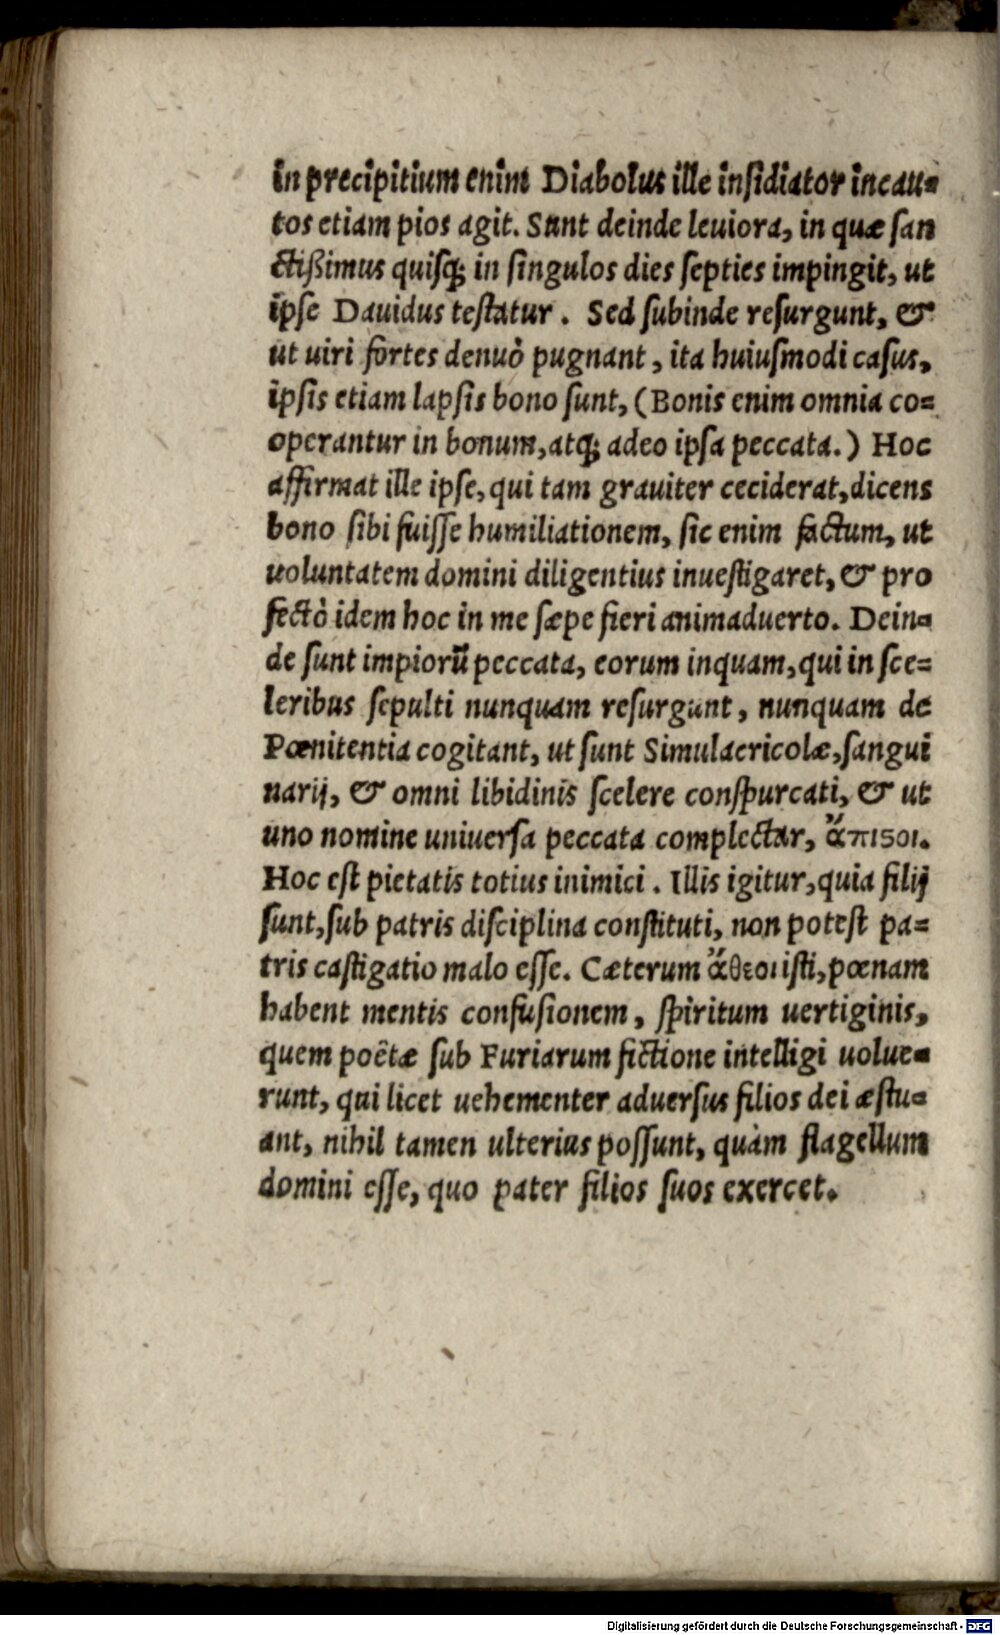 in precipitium enim Diabolus ille insidiator incau=
tos etiam pios agit. Sunt deinde leuiora, in quæ san
ctißimus quisq; in singulos dies septies impingit, ut
ipse Dauidus testatur. Sed subinde resurgunt, &
ut uiri fortes denuò pugnant, ita huiusmodi casus,
ipsis etiam lapsis bono sunt, (Bonis enim omnia co=
operantur in bonum, atq; adeo ipsa peccata.) Hoc
affirmat ille ipse, qui tam grauiter ceciderat, dicens
bono sibi fuisse humiliationem, sic enim factum, ut
uoluntatem domini diligentius inuestigaret, & pro
fectò idem hoc in me sæpe fieri animaduerto. Dein=
de sunt impiorũ peccata, eorum inquam, qui in sce=
leribus sepulti nunquam resurgunt, nunquam de
Pœnitentia cogitant, ut sunt Simulacricolæ, sangui
narij, & omni libidinis scelere conspurcati, & ut
uno nomine uniuersa peccata complectar, ἄπιϛοι.
Hoc est pietatis totius inimici. Illis igitur, quia filij
sunt, sub patris disciplina constituti, non potest pa=
tris castigatio malo esse. Cæterum ἄθεοι isti, pœnam
habent mentis confusionem, spiritum uertiginis,
quem poëtæ sub Furiarum fictione intelligi uolue=
runt, qui licet uehementer aduersus filios dei æstu=
ant, nihil tamen ulterius possunt, quàm flagellum
domini esse, quo pater filios suos exercet.
Digitalisierung gefördert durch die Deutsche Forschungsgemeinschaft - DFG